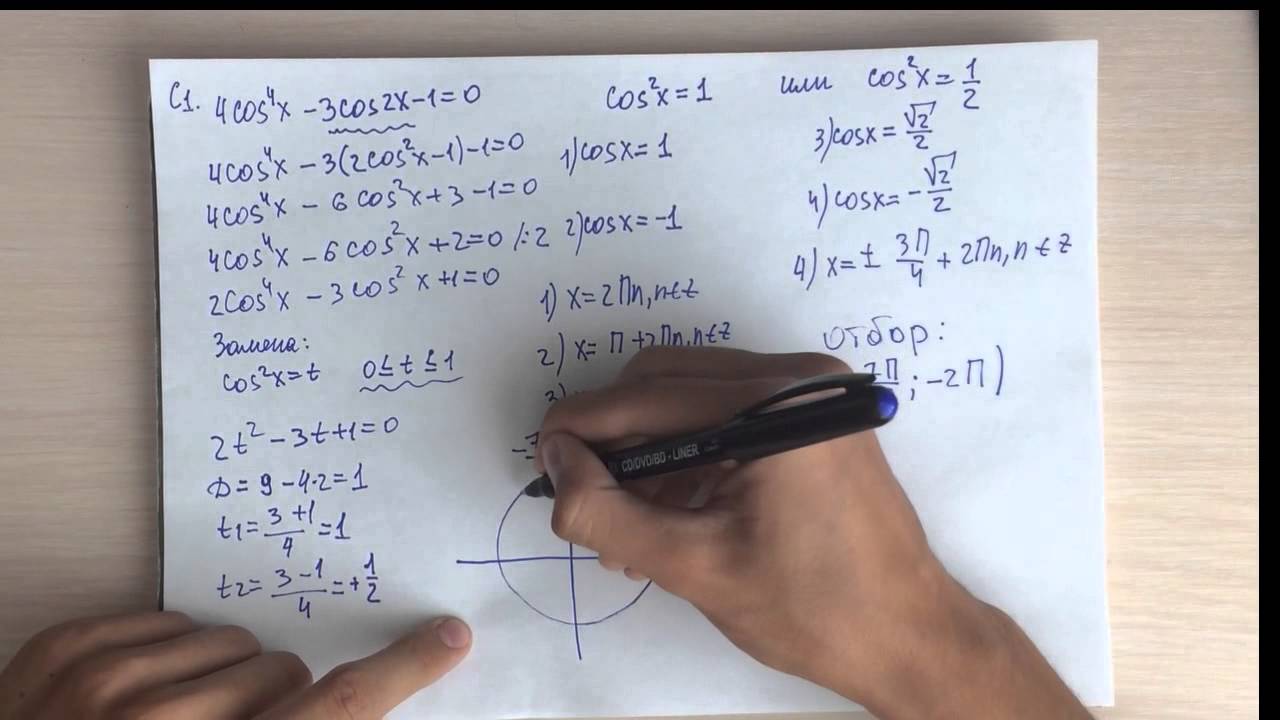 С1. 4cos⁴x − 3cos2x − 1 = 0
4cos⁴x − 3(2cos²x − 1) − 1 = 0
4cos⁴x − 6cos²x + 3 − 1 = 0
4cos⁴x − 6cos²x + 2 = 0 /:2
2cos⁴x − 3cos²x + 1 = 0
Замена:
cos²x = t 0 ≤ t ≤ 1
2t² − 3t + 1 = 0
D = 9 − 4·2 = 1
t1 = (3 + 1)/4 = 1
t2 = (3 − 1)/4 = + 1/2
cos²x = 1 или cos²x = 1/2
1) cosx = 1
2) cosx = −1
1) x = 2Пn, n∈Z
2) x = П + 2Пn, n∈Z
3)
3) cosx = √2/2
4) cosx = − √2/2
4) x = ± 3П/4 + 2Пn, n∈Z
Отбор:
; −2П)
CD/DVD/BD - LINER